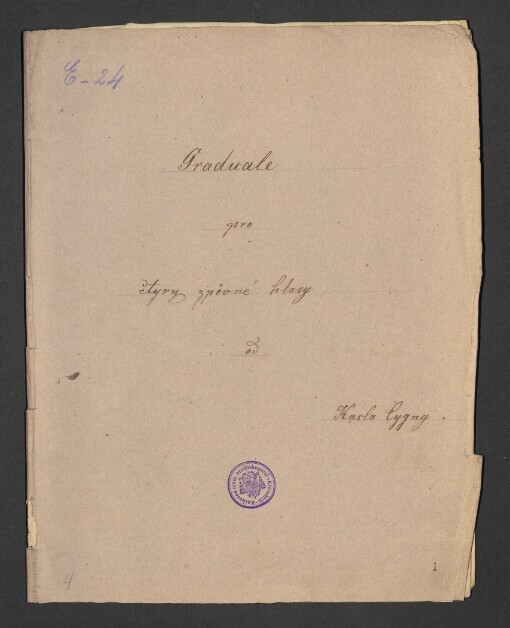 E-24
Graduale
pro
čtyry zpěvné hlasy
od
Karla
1
4